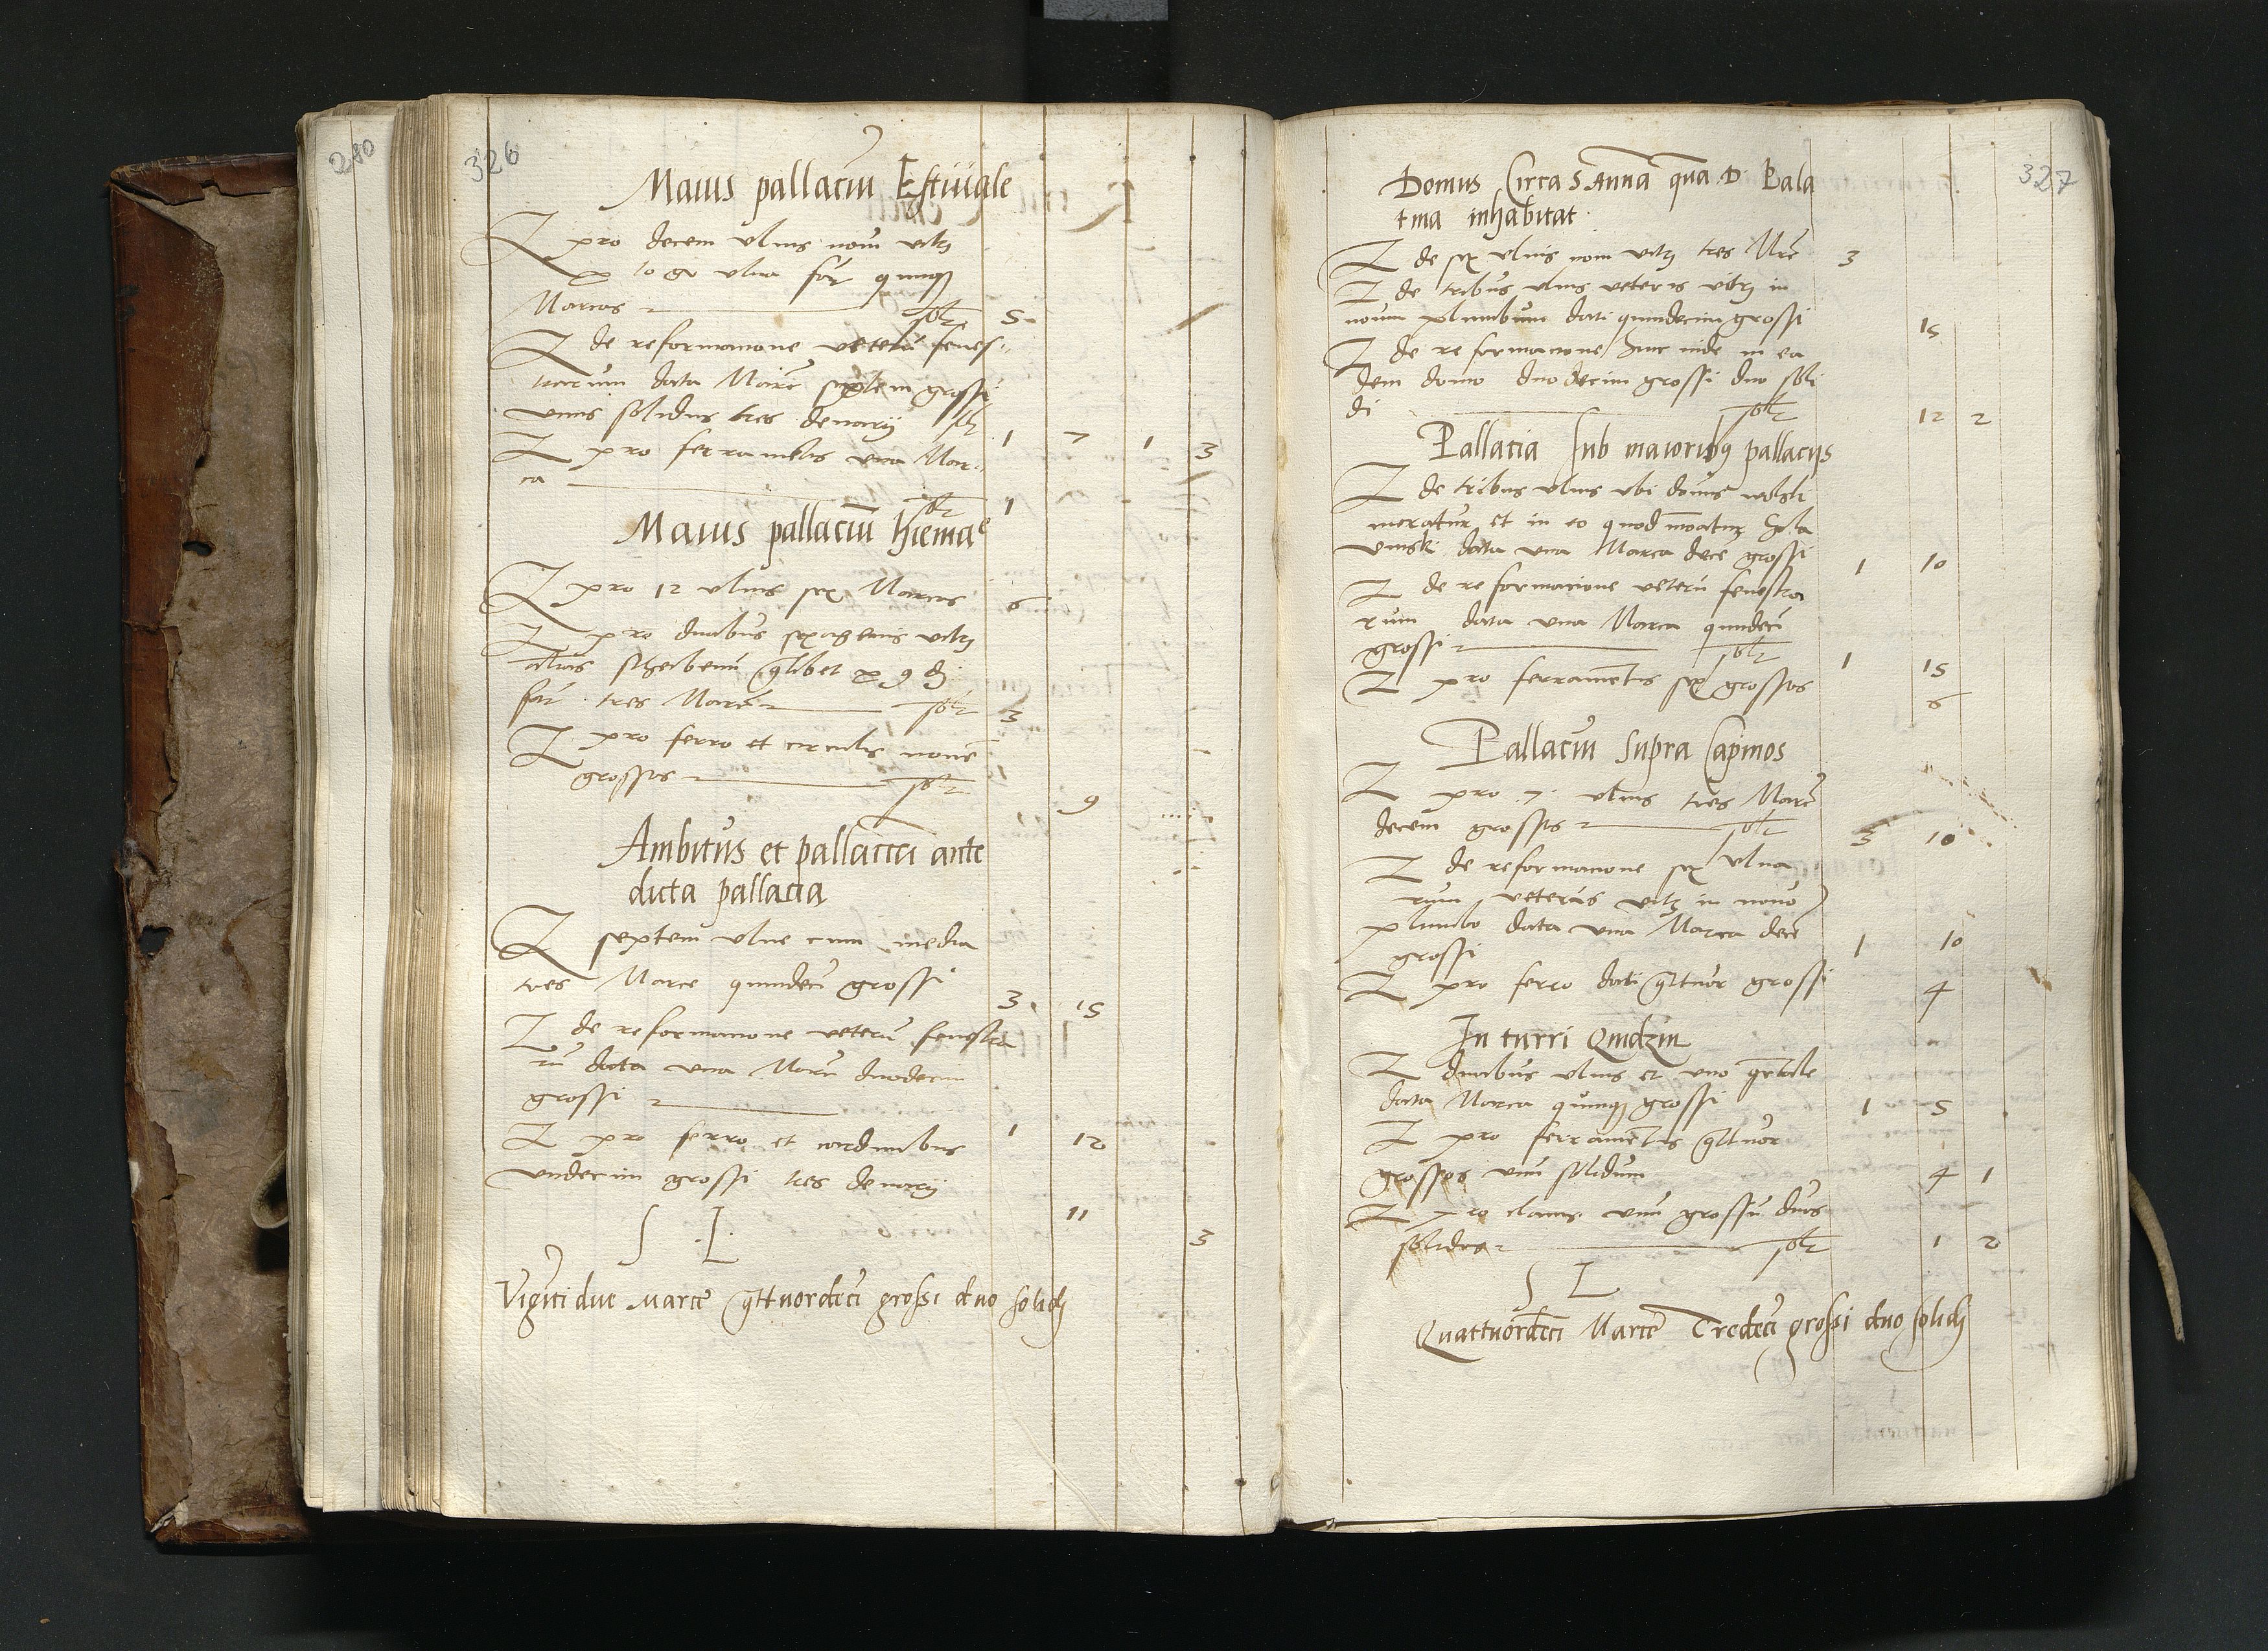 280
326
Maius pallaciu Estiuale
It pro decem ulnis noui vitri
per 10 gr ulna fac quinq
Marcas solt 5
It de reformacione veteru fenes
trarum data Marc septem grossi
unus solidus tres denarij 1 7 1 3
It pro ferramentis una Mar
ca solt 1
Maius pallaciu hiemale
It pro 12 ulnis sex Marcas 6
It pro duabus sexagenis vitri
alias scheibenn qlibet per 9 d
fac tres Marc solt 3
It pro ferro et circulis nouē
grossos solt 9
Ambitus et pallacia ante
dicta pallacia
It septem ulne cum media
tres Marce quindeci grossi 3 15
It de reformacione veteru fenestra
ru data una Marc duodecim
grossi 1 12
It pro ferro et cardinibus
undecim grossi tres denarij
11 3
S L
Viginti due Marce qttuordeci grossi duo solidi
327
Domus Circa S Anna qua D Pala
tina inhabitat
It de sex ulnis noui vitri tres Mrc 3
It de tribus ulnis veteris vitri in
nouu plumbum dati quindecim grossi 15
It de reformacione hinc inde in ea
dem domo duodecim grossi duo soli
di solt 12 2
Pallacia Sub maioribq pallacijs
It de tribus ulnis ubi domus
moratur et in eo quod moratur
data una Marca dece grossi 1 10
It de reformacione veteru fenestra
rum data una Marca quindeci
grossi solt 1 15
It pro ferramentis sex grossos 6
Pallaciu Supra Caminos
It pro 7 ulnis tres Marc
decem grossos solt 3 10
It de reformacione sex ulna
rum veteris vitri in nouo
plumbo data una Marca dece
grossi 1 10
It pro ferro dati qttuor grossi 4
In turri
It duabus ulnis et uno
data Marca quinq grossi 1 5
It pro ferramentis qttuor
grossos unu solidum 4 1
It pro clauis unu grossu duos
solidos solt 1 2
S L
Quattuordeci Marce Tredeci grossi duo solidi